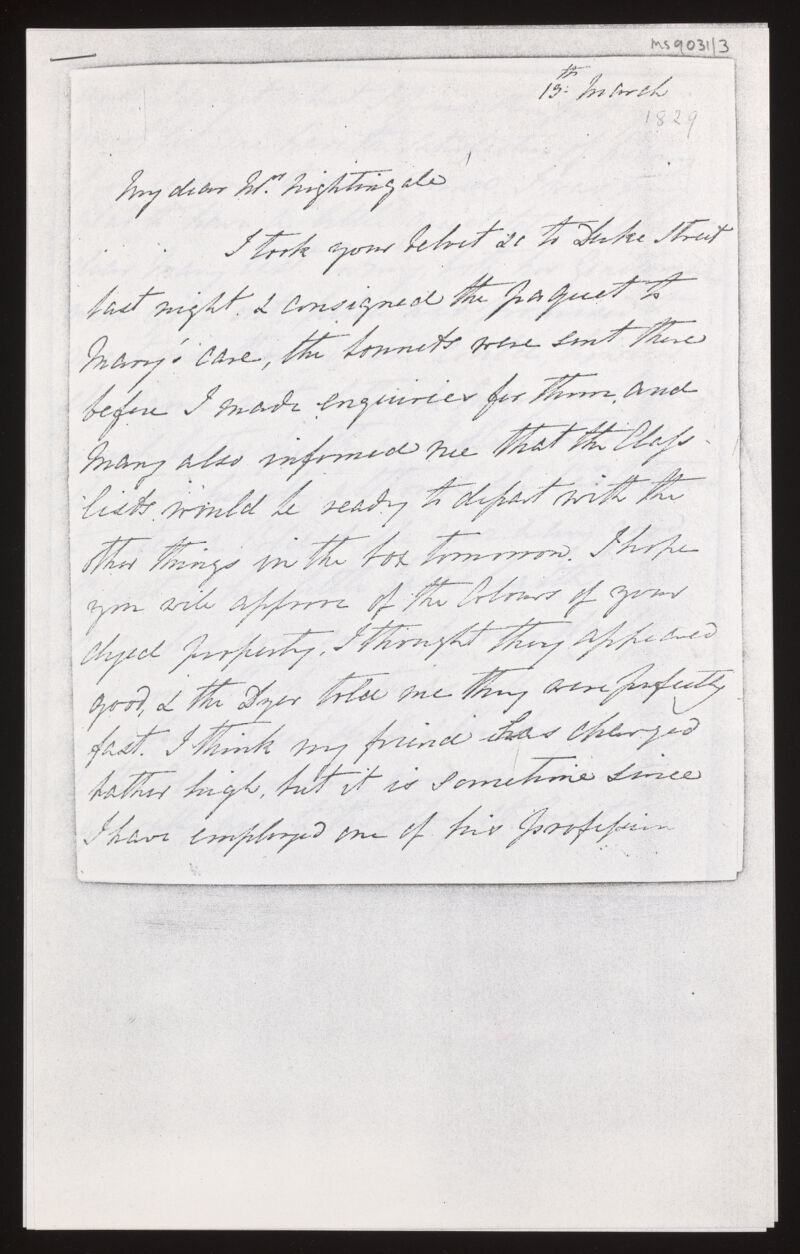 MS9031/3
13th March
1829
My dear Mrs Nightingale
I took your Velvet &c to Duke Street
last night & consigned the paquet to
Mary's care, the bonnets were sent there
before I made enquiries for them, and
Mary also informed me that the Class-
lists would be ready to depart with the
other things in the box tomorrow. I hope
you will approve of the Colours of your
dyed property. I thought they appeared
good, & the Dyer told me they were perfectly
fast. I think my friend has charged
rather high, but it is sometime since
I have employed one of his profession